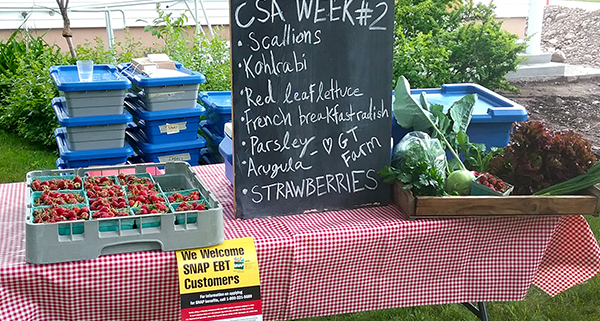 CSA WEEK #2
• Scallions
• Kohlrabi
• Red leaf lettuce
• French breakfast radish
• Parsley
• Arugula - ♡ GT
Farm
• STRAWBERRIES
We Welcome
SNAP EBT
Customers
For information on applying
for SNAP benefits, call 1-800-221-5689